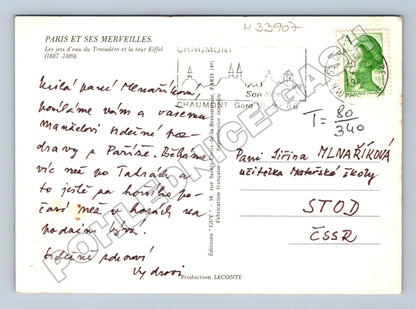 433907
PARIS ET SES MERVEILLES.
Les jets d'eau du Trocadéro et la tour Eiffel
(1887-1889).
CHAUMONT
Son
CHAUMONT Gare
T = 80
340
Milá paní Mlnaříková
posíláme vám a vašemu
manželovi srdečné poz-
dravy z Paříže. Běháme
víc než po Tatrách a
to ještě za horšího po-
časí než v horách na
podzim bývá.
Srdečně zdraví
Vydrovi
Paní Jiřina MLNAŘÍKOVÁ
učitelka Mateřské školy
STOD
ČSSR
Editions "GUY"
PARIS
Fabrication française
Reproduction interdite
Production LECONTE
POHLEDNICE-GASH